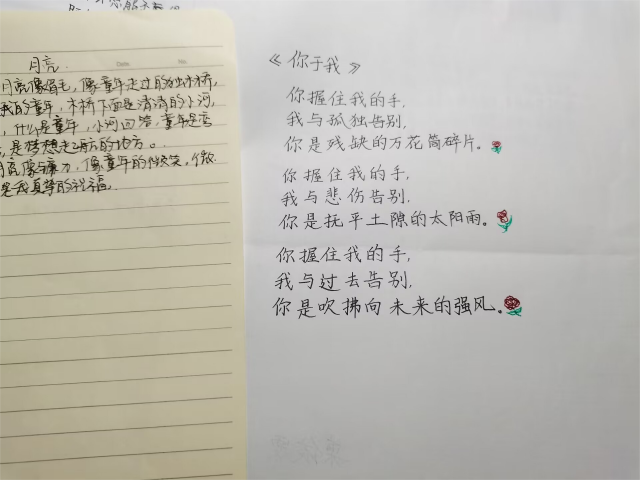 月亮
Date
No.
月亮像眉毛，像童年走过的独木桥，
我的童年，木桥下面是清清的小河，
，什么是童年，小河回答，童年是弯
，是梦想起航的地方。
月亮像镰刀，像童年的微笑，
是我真挚的祝福。
《你于我》
你握住我的手，
我与孤独告别，
你是残缺的万花筒碎片。
你握住我的手，
我与悲伤告别，
你是抚平土隙的太阳雨。
你握住我的手，
我与过去告别，
你是吹拂向未来的强风。